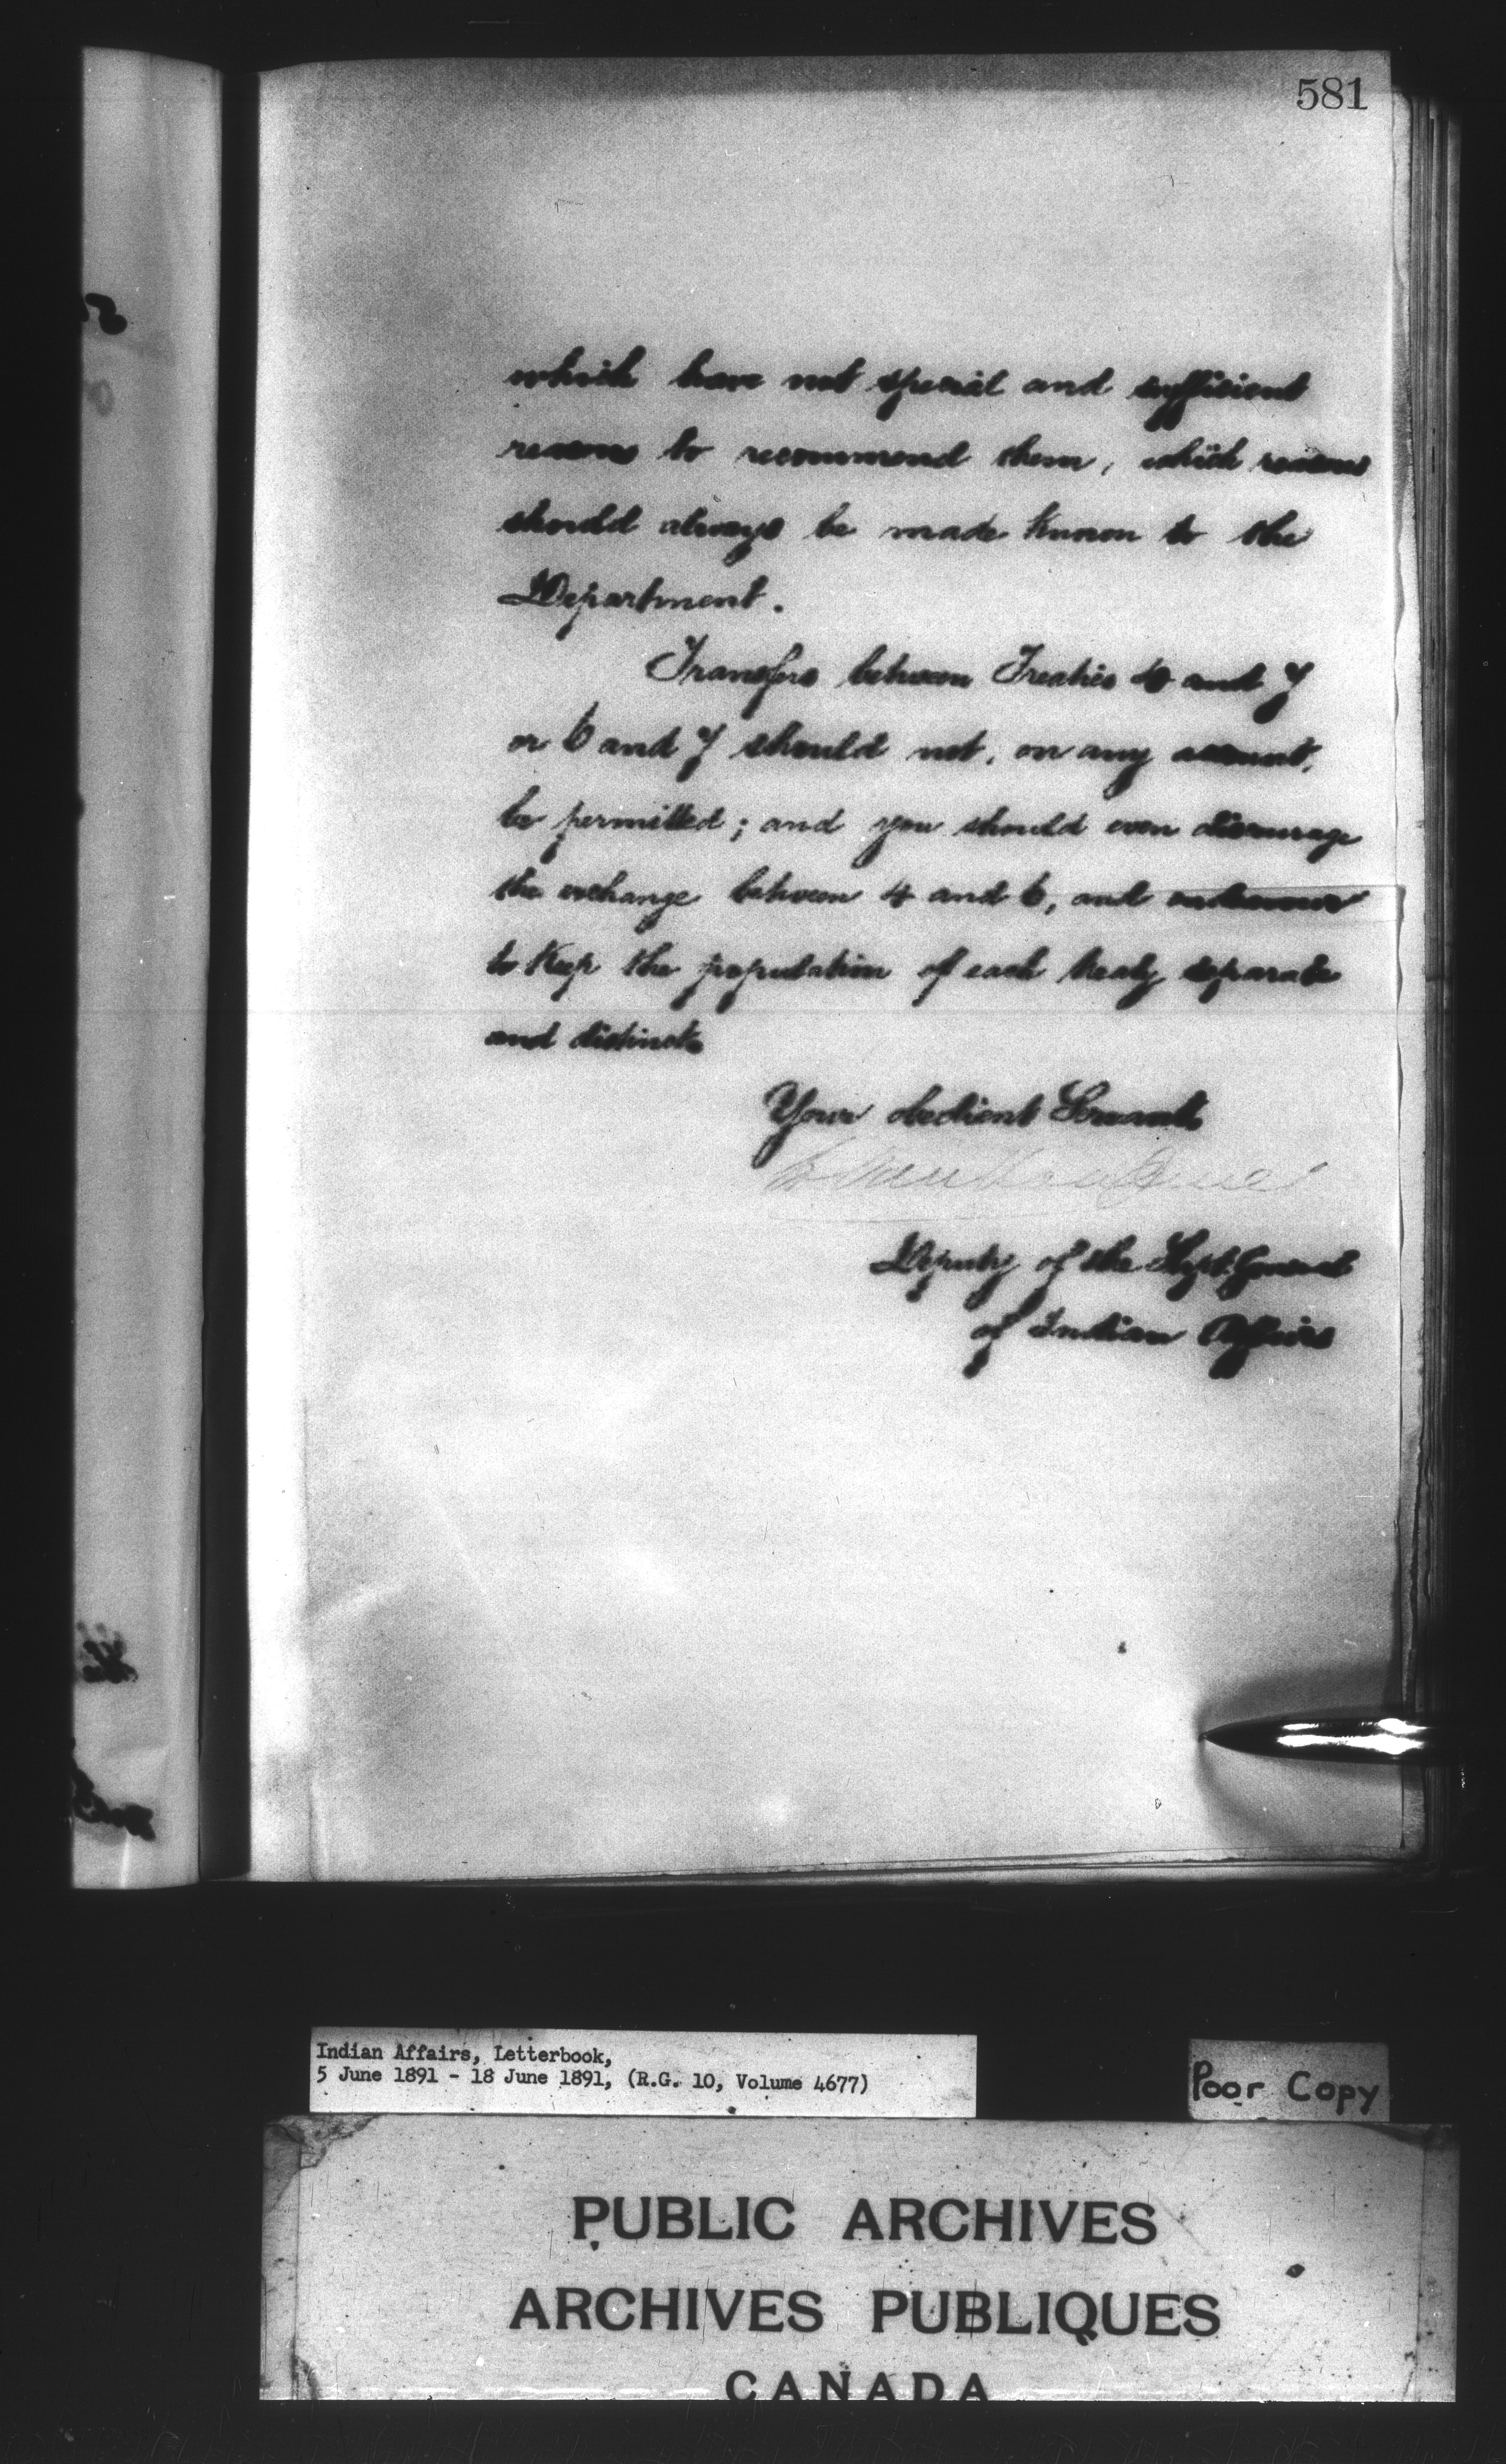 581
which have not special and sufficient
reasons to recommend them, which reasons
should always be made known to the
Department.
Transfers between Treaties 4 and 7
or 6 and 7 should not, on any account,
be permitted; and you should even discourage
the exchange between 4 and 6, and endeavour
to keep the population of each treaty separate
and distinct.
Your obedient Servant
Deputy of the Supt. General
of Indian Affairs
Indian Affairs, Letterbook,
5 June 1891 - 18 June 1891, (R.G. 10, Volume 4677)
Poor Copy
PUBLIC ARCHIVES
ARCHIVES PUBLIQUES
CANADA